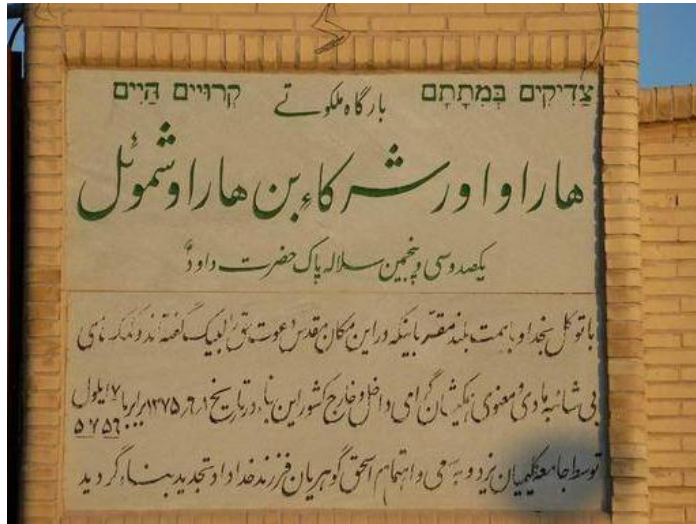 צַדִּיקִים בְּמִתָתָם בارگاه ملکوتے קְרוּיִים הַיִּים
هاراو اور شرکاء بن هاراو شموئل
یکصد و سی و پنجمین سلاله پاک حضرت داود
با توکل بخدا و با همت بلند مقتربانیکه در این مکان مقدس دعوت حق را لبیک گفته‌اند و کمک‌های
بی شائبه مادی و معنوی همکیشان گرامی داخل و خارج کشور این بناء در تاریخ ۱۳۷۵٫۶٫۱ برابر با ۱۷ ایلول ۵۷۵۶
توسط جامعه کلیمیان یزد و به سعی و اهتمام اسحق گوهریان فرزند خداداد تجدید بناء گردید